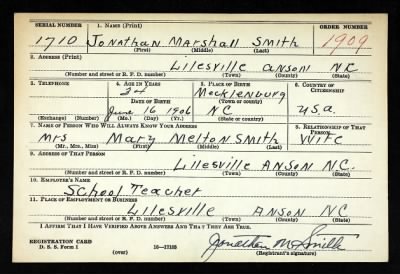 SERIAL NUMBER 1. NAME (Print) ORDER NUMBER
1710 Jonathan Marshall Smith 1909
(First) (Middle) (Last)
2. ADDRESS (Print)
Lilesville Anson N.C
(Number and street or R. F. D. number) (Town) (County) (State)
3. TELEPHONE 4. AGE IN YEARS 5. PLACE OF BIRTH 6. COUNTRY OF CITIZENSHIP
34 Mecklenburg
DATE OF BIRTH (Town or county)
June 16 1906 NC U.S.A.
(Exchange) (Number) (Mo.) (Day) (Yr.) (State or country)
7. NAME OF PERSON WHO WILL ALWAYS KNOW YOUR ADDRESS 8. RELATIONSHIP OF THAT PERSON
Mrs Mary Melton Smith Wife
(Mr., Mrs., Miss) (First) (Middle) (Last)
9. ADDRESS OF THAT PERSON
Lilesville Anson N.C.
(Number and street or R. F. D. number) (Town) (County) (State)
10. EMPLOYER'S NAME
School Teacher
11. PLACE OF EMPLOYMENT OR BUSINESS
Lilesville Anson NC
(Number and street or R. F. D. number) (Town) (County) (State)
I AFFIRM THAT I HAVE VERIFIED ABOVE ANSWERS AND THAT THEY ARE TRUE.
REGISTRATION CARD Jonathan M Smith
D. S. S. Form 1 (over) 16—17105 Registrant's signature